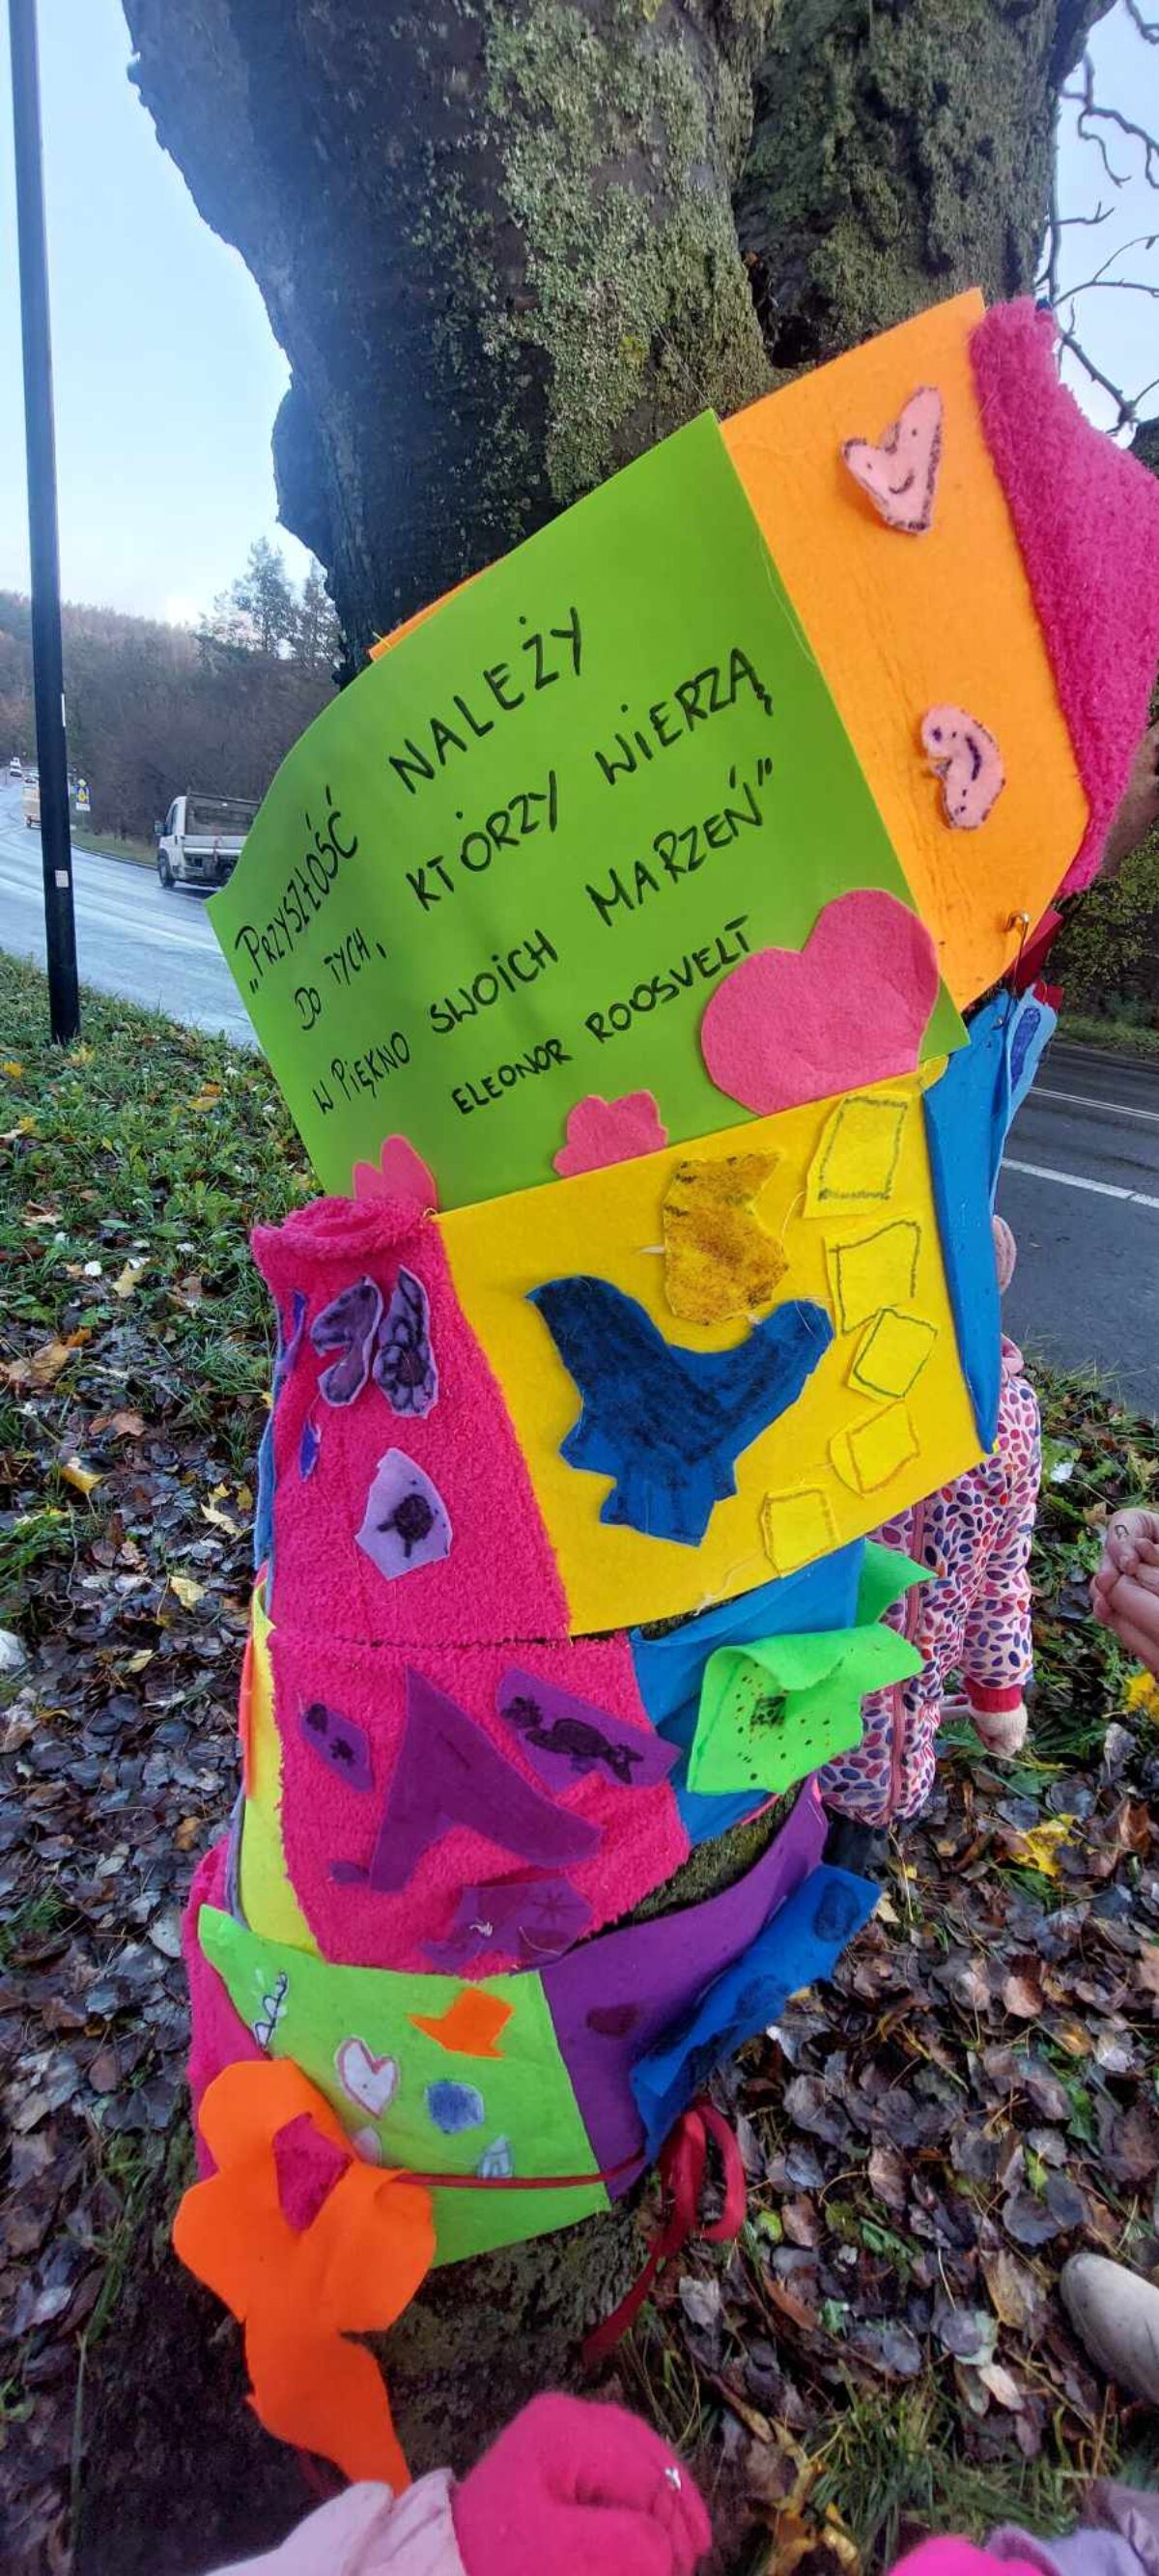 „PRZYSZŁOŚĆ NALEŻY
DO TYCH, KTÓRZY WIERZĄ
W PIĘKNO SWOICH MARZEŃ”
ELEONOR ROOSVELT